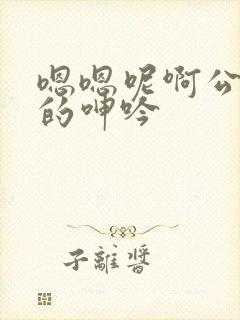 嗯嗯呢啊公
的呻吟
子離醬